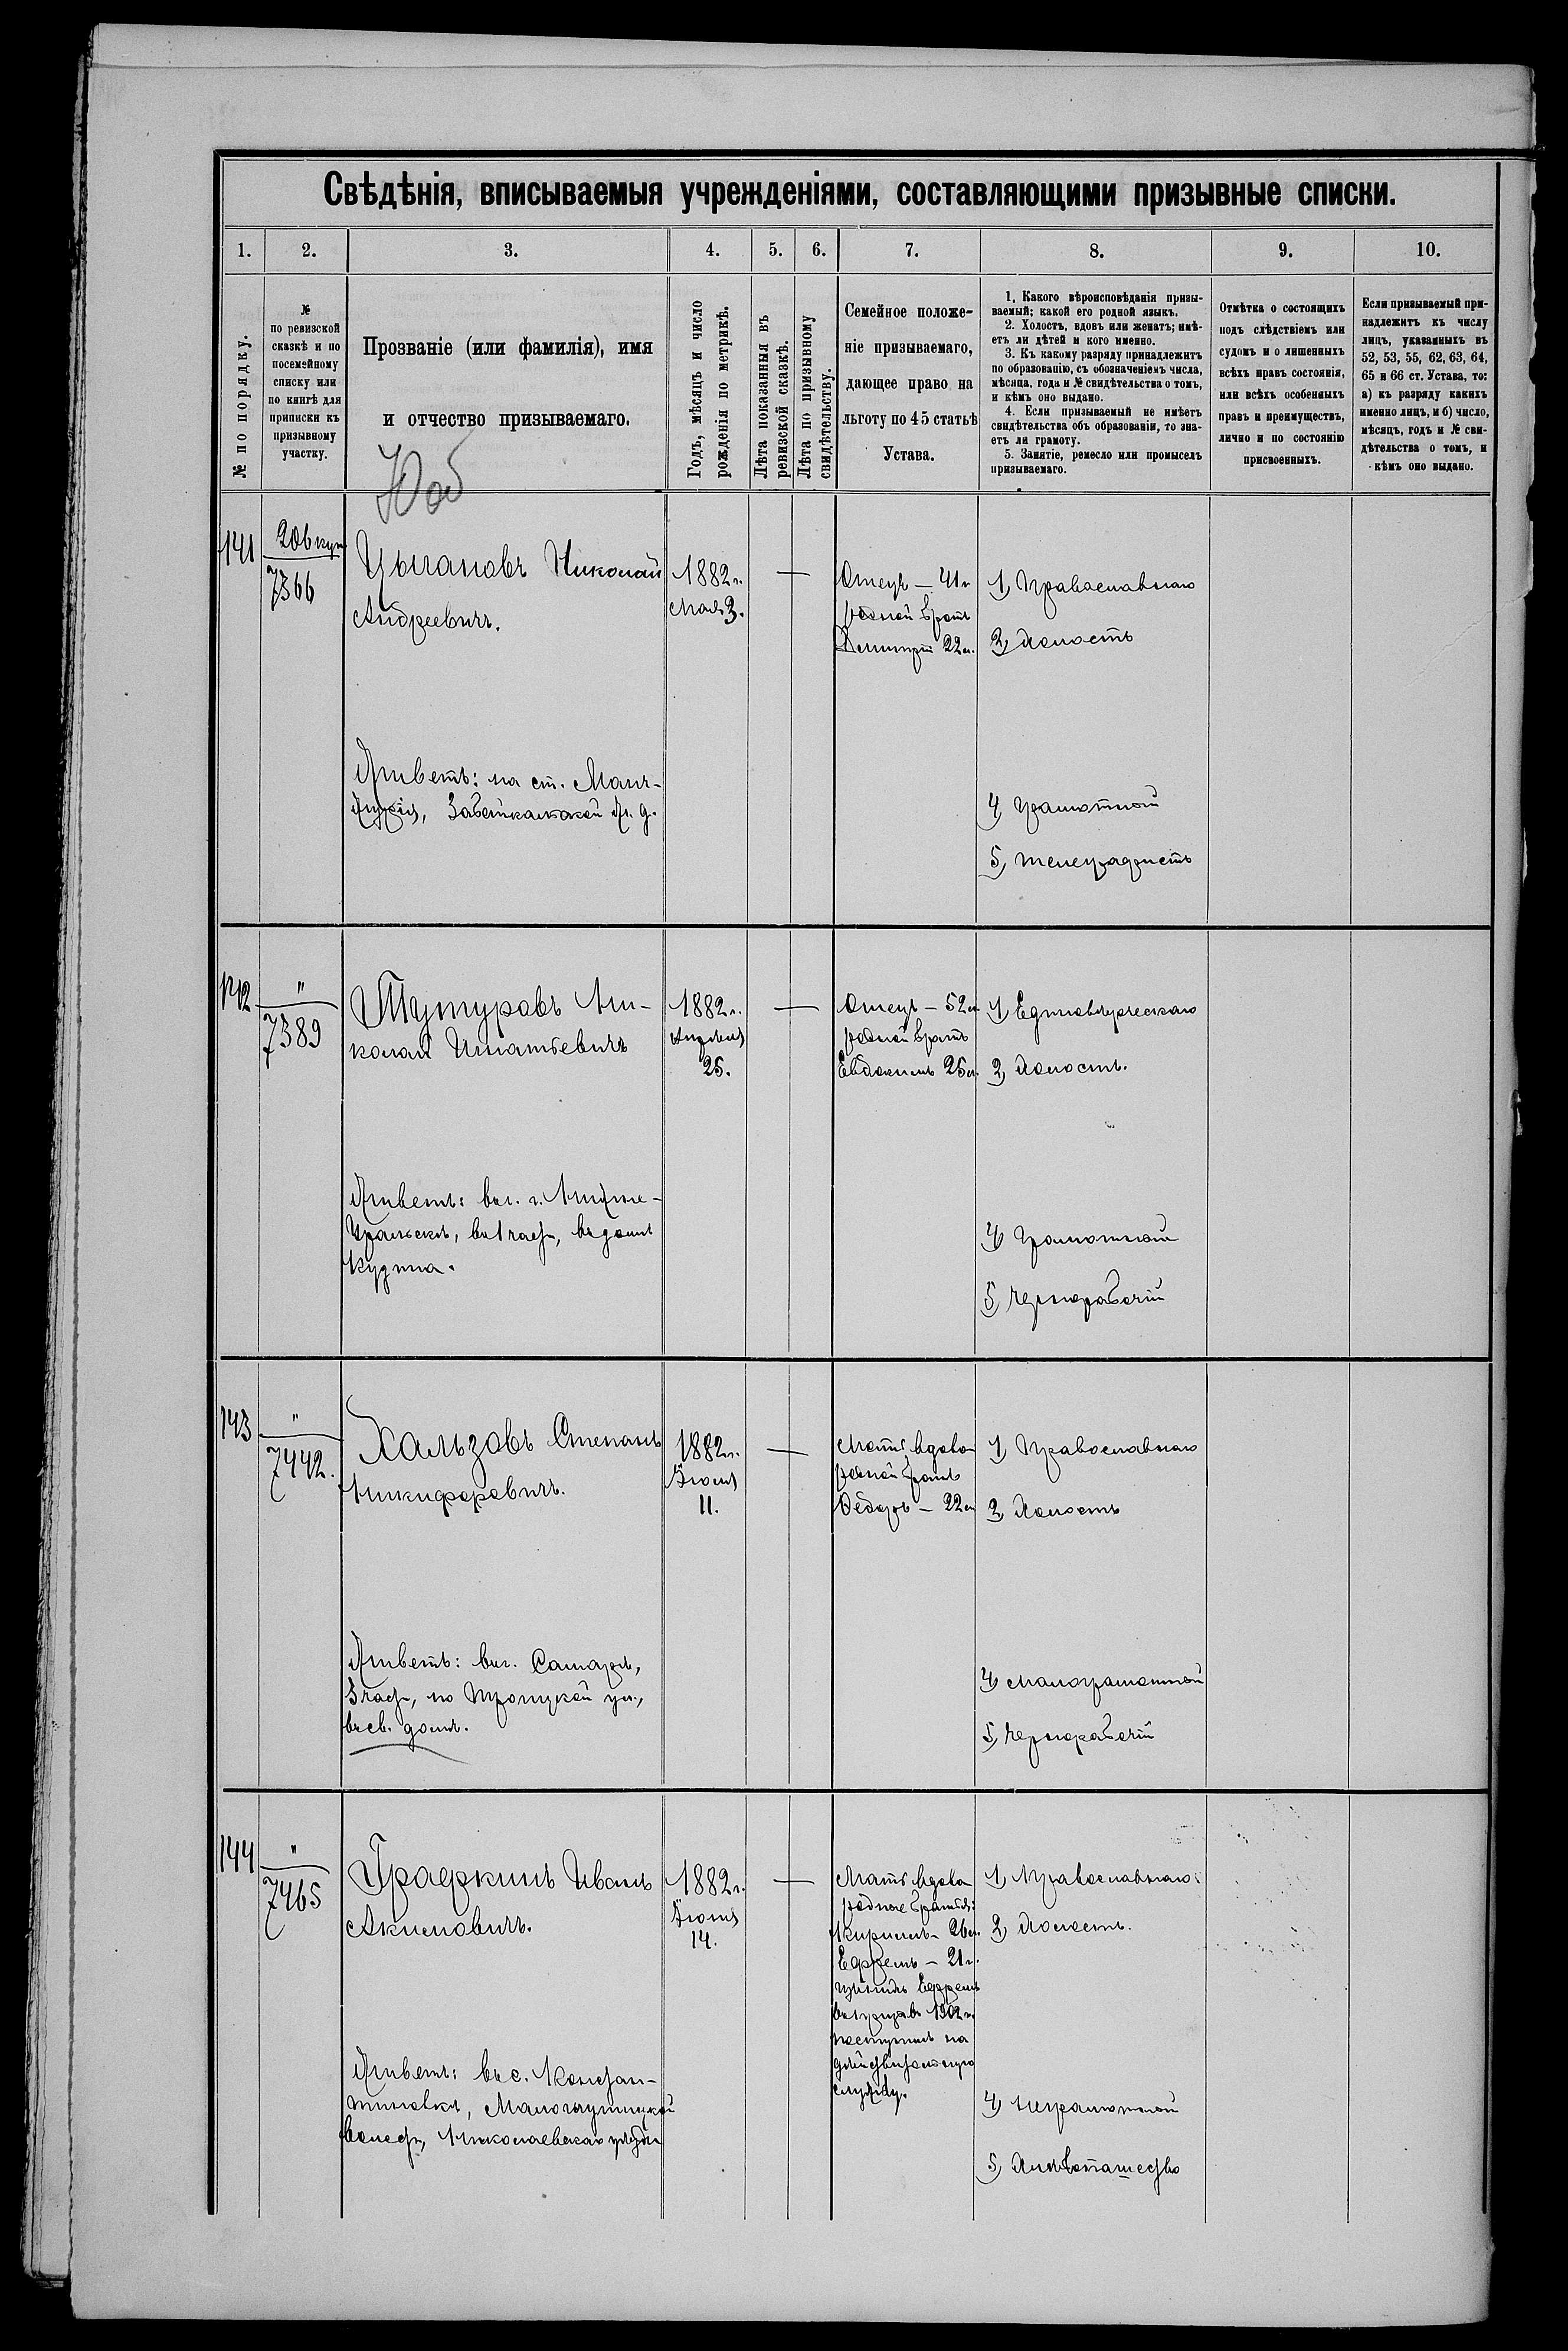 Свѣдѣнія, вписываемыя учрежденіями, составляющими призывные списки.
1. 2. 3. 4. 5. 6. 7. 8. 9. 10.
№ по порядку.
№
по ревизской
сказкѣ и по
посемейному
списку или
по книгѣ для
приписки къ
призывному
участку.
Прозваніе (или фамилія), имя
и отчество призываемаго.
Годъ, мѣсяцъ и число
рожденія по метрикѣ.
Лѣта показанныя въ
ревизской сказкѣ.
Лѣта по призывному
свидѣтельству.
Семейное положе-
ніе призываемаго,
дающее право на
льготу по 45 статьѣ
Устава.
1. Какого вѣроисповѣданія призы-
ваемый; какой его родной языкъ.
2. Холостъ, вдовъ или женатъ; имѣ-
етъ ли дѣтей и кого именно.
3. Къ какому разряду принадлежитъ
по образованію, съ обозначеніемъ числа,
мѣсяца, года и № свидѣтельства о томъ,
и кѣмъ оно выдано.
4. Если призываемый не имѣетъ
свидѣтельства объ образованіи, то зна-
етъ ли грамоту.
5. Занятіе, ремесло или промыселъ
призываемаго.
Отмѣтка о состоящихъ
подъ слѣдствіемъ или
судомъ и о лишенныхъ
всѣхъ правъ состоянія,
или всѣхъ особенныхъ
правъ и преимуществъ,
лично и по состоянію
присвоенныхъ.
Если призываемый при-
надлежитъ къ числу
лицъ, указанныхъ въ
52, 53, 55, 62, 63, 64,
65 и 66 ст. Устава, то:
а) къ разряду какихъ
именно лицъ, и б) число,
мѣсяцъ, годъ и № сви-
дѣтельства о томъ, и
кѣмъ оно выдано.
141
7366
Цыгановъ Николай
Андреевичъ.
1882 г.
Мая 3.
Отецъ — 41 г.
родной братъ
Дмитрій 22 л.
1) Православнаго
2) Холостъ
Живетъ: на ст. Мань-
чжурія, Забайкальской ж. д.
4) Грамотной
5) телеграфистъ
142
"
7389
Тутуровъ Ни-
колай Игнатьевичъ
1882 г.
Апрѣля
25.
Отецъ — 52 л.
родной братъ
Евдокимъ 25 л.
1) Единовѣрческаго
2) Холостъ.
Живетъ: въ г. Ново-
Уральскѣ, въ 1 части, въ домѣ
Кудина.
4) Грамотной
5) чернорабочій
143
"
7442.
Хальзовъ Степанъ
Никифоровичъ.
1882 г.
Іюля
11.
Мать вдова
родной братъ
Ѳедоръ — 22 л.
1) Православнаго
2) Холостъ
Живетъ: въ г. Самарѣ,
3 части, по Троицкой ул.,
въ св. домѣ.
4) Малограмотной
5) чернорабочій
144
"
7465
Графкинъ Иванъ
Акимовичъ.
1882 г.
Іюня
14.
Мать вдова
родные братья:
Кириллъ — 26 л.
Ефремъ — 21 г.
Ефремъ
въ призывъ 1902 г.
поступилъ на
дѣйствительную
службу.
1) Православнаго
2) Холостъ.
Живетъ: въ с. Констан-
тиновкѣ,
волости, Николаевскаго уѣзда
4) Неграмотной
5) Хлѣбопашество